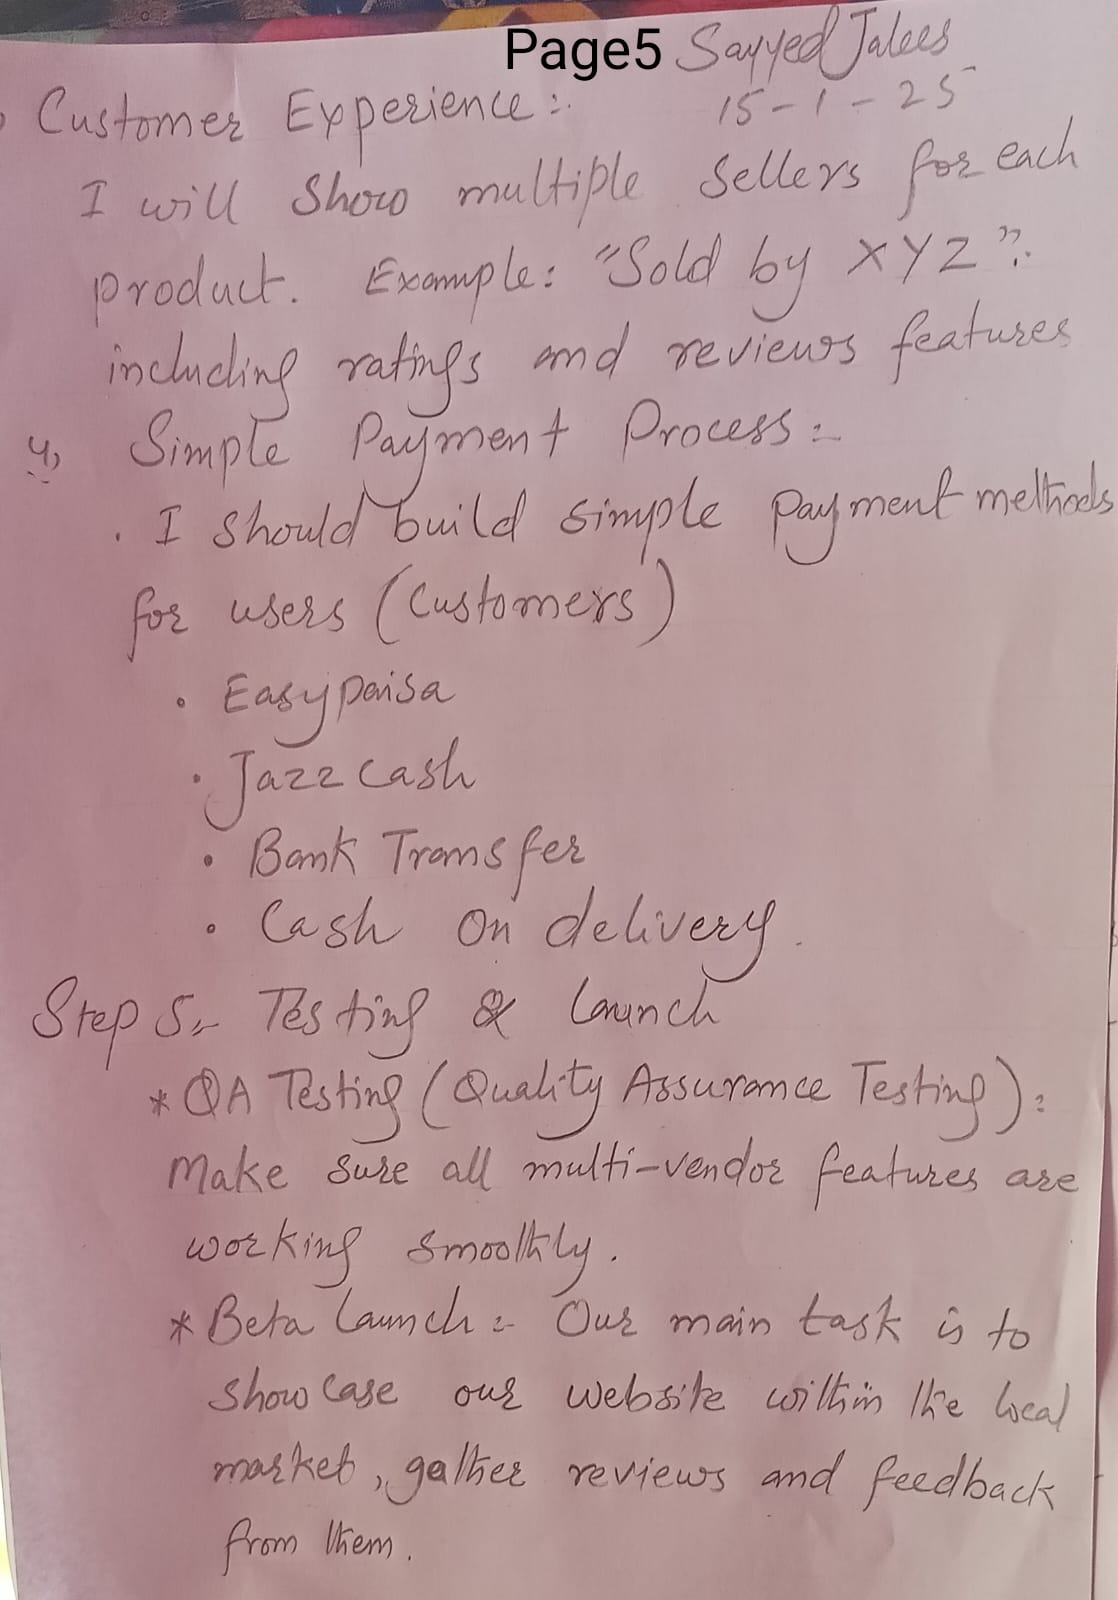 Page5 Sayyed Jalees
15-1-25
Customer Experience:-
I will show multiple sellers for each
product. Example: "Sold by XYZ".
including ratings and reviews features
4) Simple Payment Process:-
. I should build simple payment methods
for users (Customers)
• Easypaisa
• Jazzcash
• Bank Transfer
• Cash on delivery.
Step 5:- Testing & Launch
* QA Testing (Quality Assurance Testing):
Make sure all multi-vendor features are
working smoothly.
* Beta Launch:- Our main task is to
showcase our website within the local
market, gather reviews and feedback
from them.